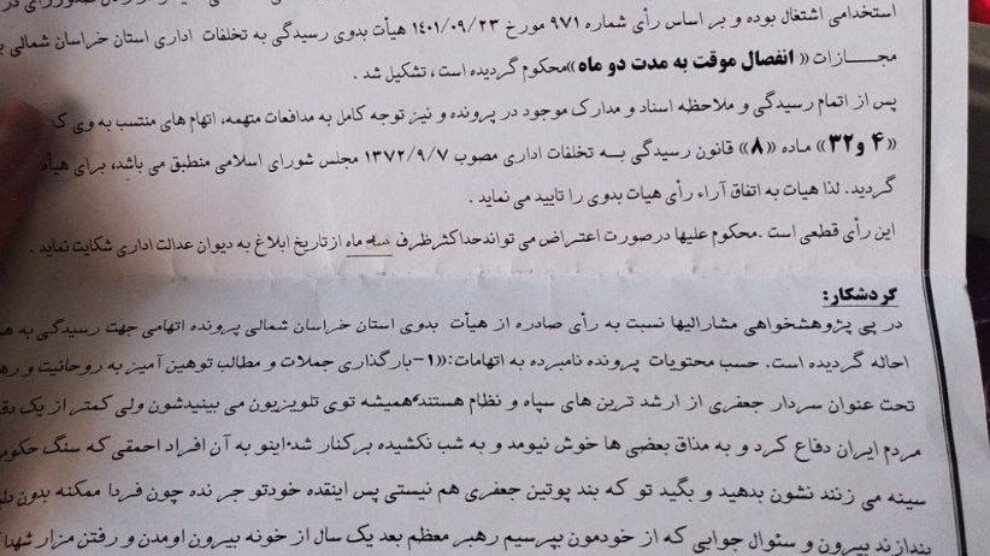 استخدامی اشتغال بوده و بر اساس رأی شماره ۹۷۱ مورخ ۱۴۰۱/۰۹/۲۳ هیأت بدوی رسیدگی به تخلفات اداری استان خراسان شمالی
مجـــازات «انفصال موقت به مدت دو ماه» محکوم گردیده است، تشکیل شد .
پس از اتمام رسیدگی و ملاحظه اسناد و مدارک موجود در پرونده و نیز توجه کامل به مدافعات متهمه، اتهام های منتسب به وی
«۴ و۳۲» ماده «۸» قانون رسیدگی بـه تخلفات اداری مصوب ۱۳۷۲/۹/۷ مجلس شورای اسلامی منطبق می باشد، برای هیأت
گردید. لذا هیات به اتفاق آراء رأی هیات بدوی را تایید می نماید .
این رأی قطعی است .محکوم علیها درصورت اعتراض می تواندحداکثرظرف سه ماه ازتاریخ ابلاغ به دیوان عدالت اداری شکایت نماید .
گردشکار:
در پی پژوهشخواهی مشارالیها نسبت به رأی صادره از هیأت بدوی استان خراسان شمالی پرونده اتهامی جهت رسیدگی به
احاله گردیده است. حسب محتویات پرونده نامبرده به اتهامات:«۱-بارگذاری جملات و مطالب توهین آمیز به روحانیت و
تحت عنوان سردار جعفری از ارشد ترین های سپاه و نظام هستند،همیشه توی تلویزیون می بینیدشون ولی کمتر از یک
مردم ایران دفاع کرد و به مذاق بعضی ها خوش نیومد و به شب نکشیده برکنار شد.اینو به آن افراد احمقی که سنگ
سینه می زنند نشون بدهید و بگید تو که بند پوتین جعفری هم نیستی پس اینقده خودتو جر نده چون فردا ممکنه بدون
بندازند بیرون و سئوال جوابی که از خودمون بپرسیم رهبر معظم بعد یک سال از خونه بیرون اومدن و رفتن مزار شهدا